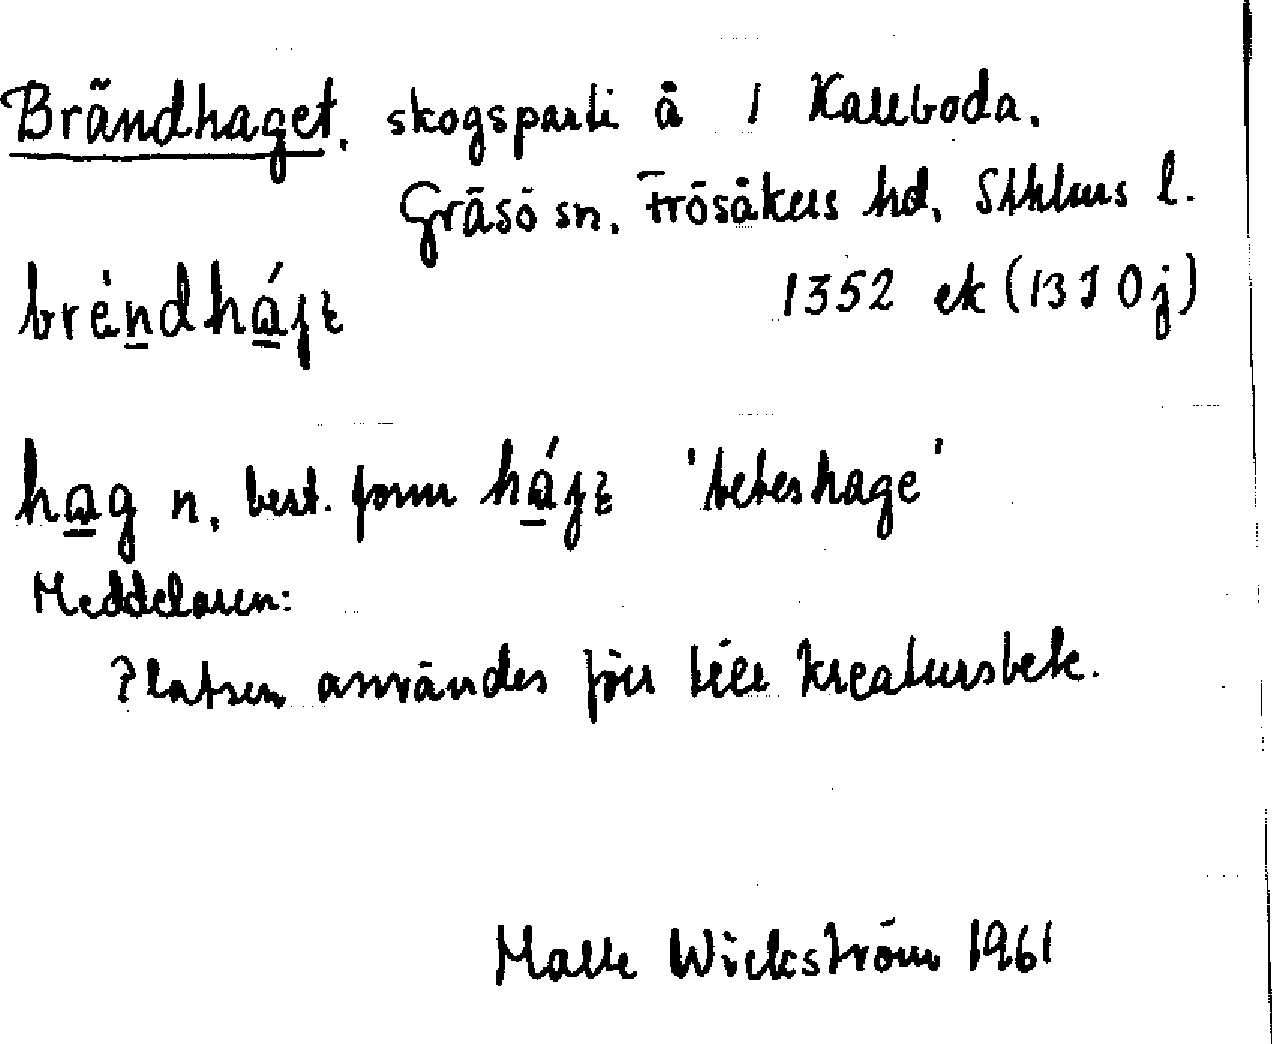 Brändhaget, skogsparti å 1 Kallboda.
Gräsö sn, Frösåkers hd, Sthlms l.
brèndháɡ̣t 1352 ek (13I0j)
hag n, best. form háɡ̣t 'beteshage'
Meddelaren:
Platsen användes förr till kreatursbete.
Malte Wickström 1961